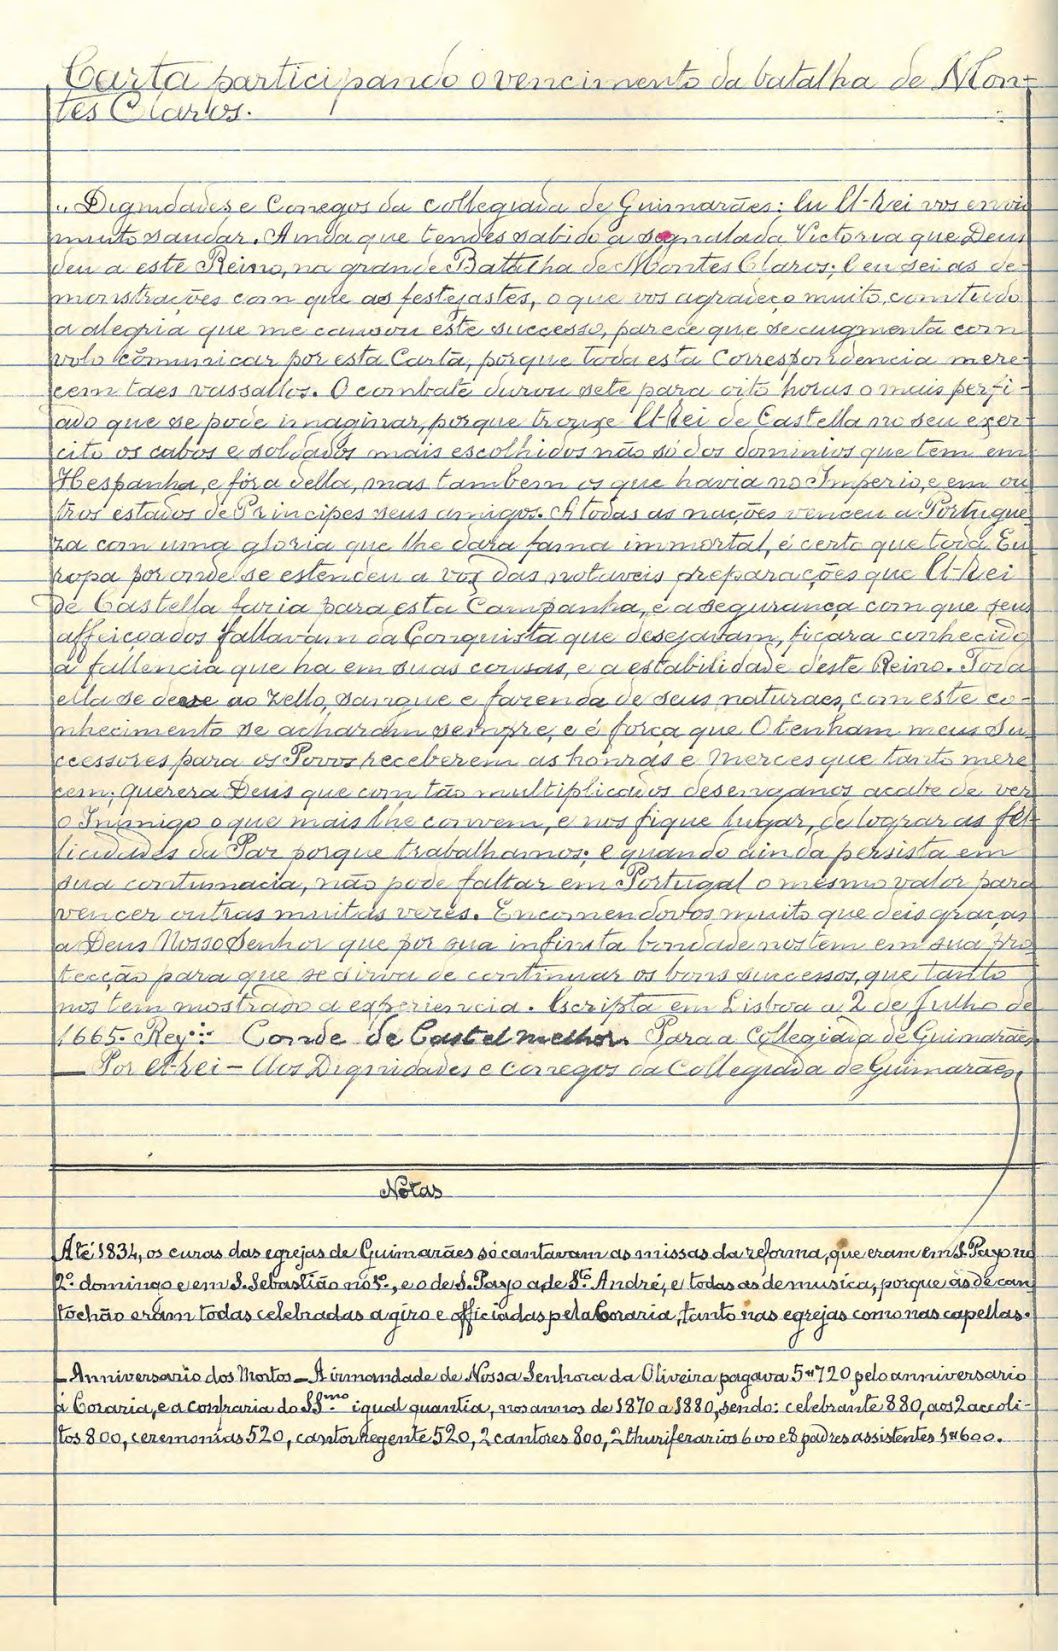 Carta participando o vencimento da batalha de Mon-
tes Claros.
"Dignidades e Conegos da Collegiada de Guimarães: Eu El-Rei vos envio
muito saudar. Ainda que tendes sabido a segnalada Victoria que Deus
deu a este Reino, na grande Batalha de Montes Claros; e eu sei as de-
monstrações com que as festejastes, o que vos agradeço muito, comtudo
a alegria que me causou este successo, parece que se augmenta com
volo cõmunicar por esta Carta, porque toda esta Correspondencia mere-
cem taes vassallos. O combate durou sete para oito horas o mais perfi-
ado que se pode imaginar, porque trouxe El-Rei de Castella no seu exer-
cito os cabos e soldados mais escolhidos não só dos dominios que tem em
Hespanha, e fóra della, mas tambem os que havia no Imperio, e em ou
tros estados de Principes seus amigos. A todas as nações venceu a Portugue
za com uma gloria que lhe dara fama immortal, é certo que toda Eu
ropa por onde se estendeu a voz das notaveis preparações que El-Rei
de Castella faria para esta Campanha, e a segurança com que seus
affeiçoados fallavam da Conquista que desejavam, ficara conhecido
a fallencia que ha em suas cousas, e a estabilidade d'este Reino. Toda
ella se deve ao zello, sangue e fazenda de seus naturaes, com este co-
nhecimento se acharám sempre, e é força que O tenham meus Su-
ccessores para os Povos receberem as honras e Merces que tanto mere
cem; querera Deus que com tão multiplicados desenganos acabe de ver
o Inimigo o que mais lhe convem, e nos fique lugar, de lograr as fe-
licidades da Paz porque trabalhamos; e quando ainda persista em
sua contumacia, não pode faltar em Portugal o mesmo valor para
vencer outras muitas vezes. Encomendovos muito que deis graças
a Deus Nosso Senhor que por sua infinita bondade nos tem em sua pro
tecção para que se sirva de continuar os bons successos, que tanto
nos tem mostrado a experiencia. Escripta em Lisboa a 2 de Julho de
1665. Rey∴ Conde de Castelmelhor. Para a Collegiada de Guimarães
— Por el-rei — Aos Dignidades e conegos da Collegiada de Guimarães,
Notas
Até 1834, os curas das egrejas de Guimarães só cantavam as missas da reforma, que eram em S. Payo no
2º domingo e em S. Sebastião no 5º, e o de S. Payo a de Sto André, e todas as de musica, porque as de can
tochão eram todas celebradas a giro e officiadas pela Coraria, tanto nas egrejas como nas capellas.
— Anniversario dos Mortos — A irmandade de Nossa Senhora da Oliveira pagava 5$720 pelo anniversario
á Coraria, e a confraria do SSmo igual quantia, nos annos de 1870 a 1880, sendo: celebrante 880, aos 2 accoli-
tos 800, ceremonias 520, cantor regente 520, 2 cantores 800, 2 thuriferarios 600 e 8 padres assistentes 1$600.